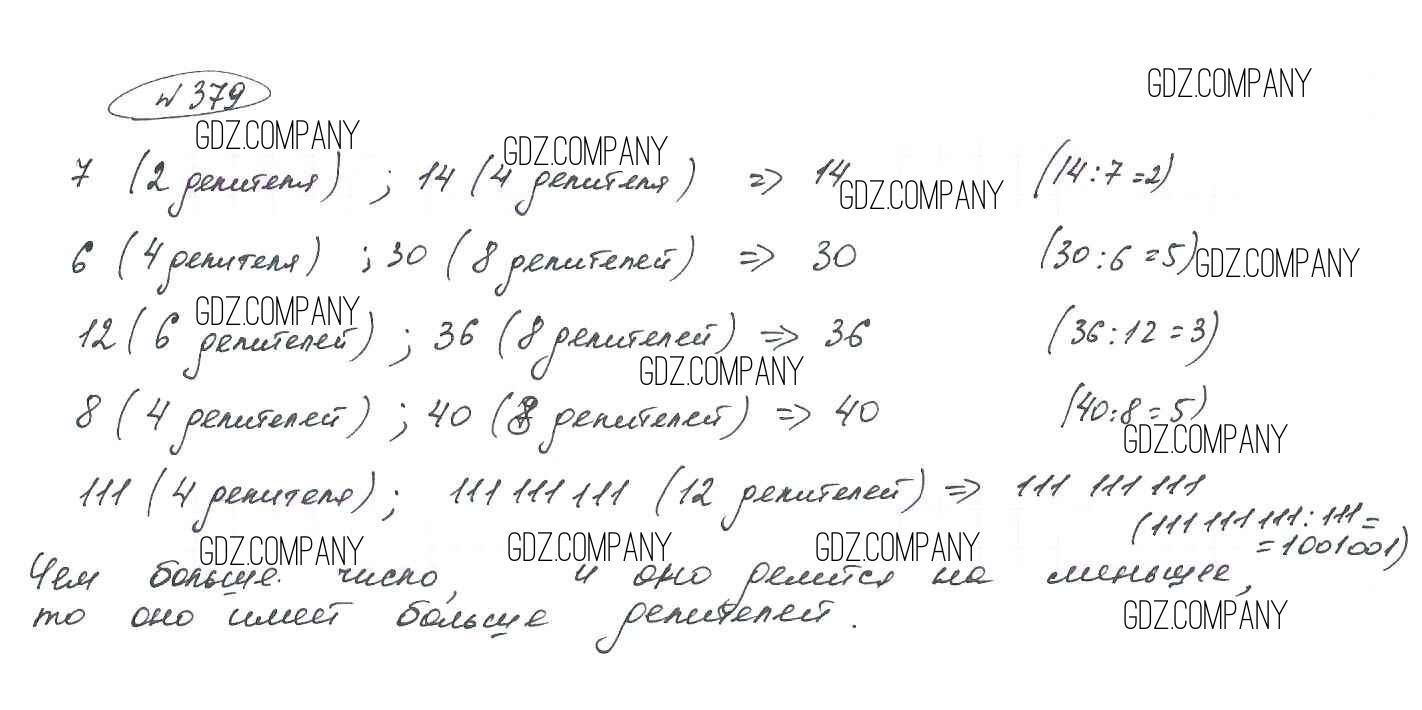 № 379
GDZ.COMPANY
GDZ.COMPANY
GDZ.COMPANY
7 (2 делителя) ; 14 (4 делителя) => 14 (14:7=2)
GDZ.COMPANY
6 (4 делителя) ; 30 (8 делителей) => 30 (30:6=5)
GDZ.COMPANY
GDZ.COMPANY
12 (6 делителей) ; 36 (8 делителей) => 36 (36:12=3)
GDZ.COMPANY
8 (4 делителей) ; 40 (8 делителей) => 40 (40:8=5)
GDZ.COMPANY
111 (4 делителя) ; 111 111 111 (12 делителей) => 111 111 111
(111 111 111:111=
=1001001)
GDZ.COMPANY
GDZ.COMPANY
GDZ.COMPANY
Чем больше число, и оно делится на меньшее,
то оно имеет больше делителей.
GDZ.COMPANY